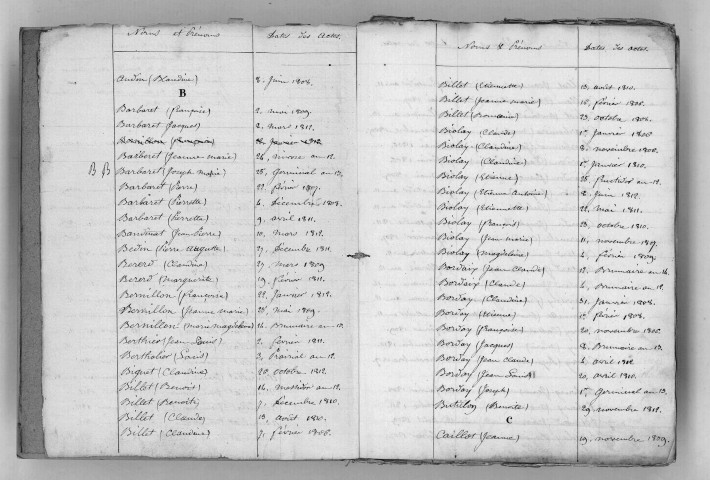 Noms et Prénoms Dates des Actes.
Audin (Blandine) 8. Juin 1808.
B
Barbaret (françoise) 2. mai 1809.
Barbaret Jacques) 2. mars 1812.
Janvier 1812.
Barberet (Jeanne marie) 26. nivose an 12.
B B
Barbaret (Joseph marie) 25. Germinal an 12.
Barbaret (Pierre) 22. février 1807.
Barbaret (Pierrette) 6. décembre 1808.
Barbaret (Pierrette) 9. avril 1811.
Jean Pierre) 10. mars 1812.
Bedin (Pierre Auguste) 27. décembre 1811.
Bererd (Claudine) 27. mars 1809
Bererd (Marguerite) 19. février 1811.
Bernillon (françoise) 22. Janvier 1812.
Bernillon (Jeanne marie) 28. mai 1809.
Bernillon (marie magdelaine) 16. Brumaire an 12.
Berthier (Jean Louis) 2. février 1811.
Bertholier (Louis) 3. Prairial an 12.
Biguet (Claudine) 20. octobre 1812.
Billet (Benoit) 16. messidor an 12.
Billet (Benoite) 7. décembre 1810.
Billet (Claude) 13. août 1810.
Billet (Claudine) 7. février 1806.
Noms & Prénoms Dates des actes.
Billet (Etiennette) 13. août 1810.
Billet (Jeanne marie) 16. février 1806.
Billet (Romaine) 23. octobre 1806.
Biolay (Claude) 1er Janvier 1806
Biolay (Claudine) 2. novembre 1806.
Biolay (Claudine) 1er Janvier 1810.
Biolay (Etienne) 25. fructidor an 12.
Biolay (Etienne Antoine) 2. Juin 1812.
Biolay (Etiennette) 22. mai 1811.
Biolay (françois) 23. octobre 1810.
Biolay (Jean marie) 11. novembre 1807.
Biolay (magdelaine) 4. février 1809.
Borday (Jean Claude) 12. Brumaire an 14.
Borday (Claude) 6. Brumaire an 12.
Borday (Claudine) 31. Janvier 1808.
Borday (Etienne) 1er février 1808.
Borday (françoise) 20. novembre 1806.
Borday (Jacques) 8. Brumaire an 13.
Borday (Jean Claude) 6. avril 1812
Borday (Jean Louis) 20. avril 1810.
Borday (Joseph) 17. Germinal an 13.
Butillon (Benoite) 29. novembre 1812.
C
Caillot (Jeanne) 19. novembre 1809.